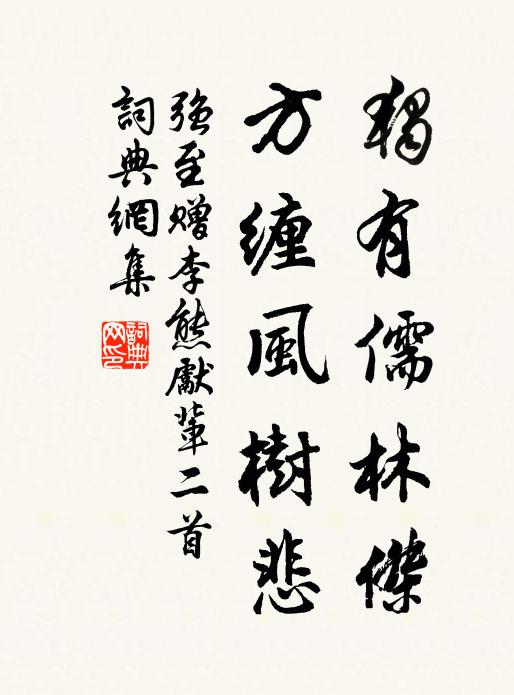 獨有儒林傑
方纏風樹悲
強至贈李熊獻輩二首
詞典網集
詞典網印